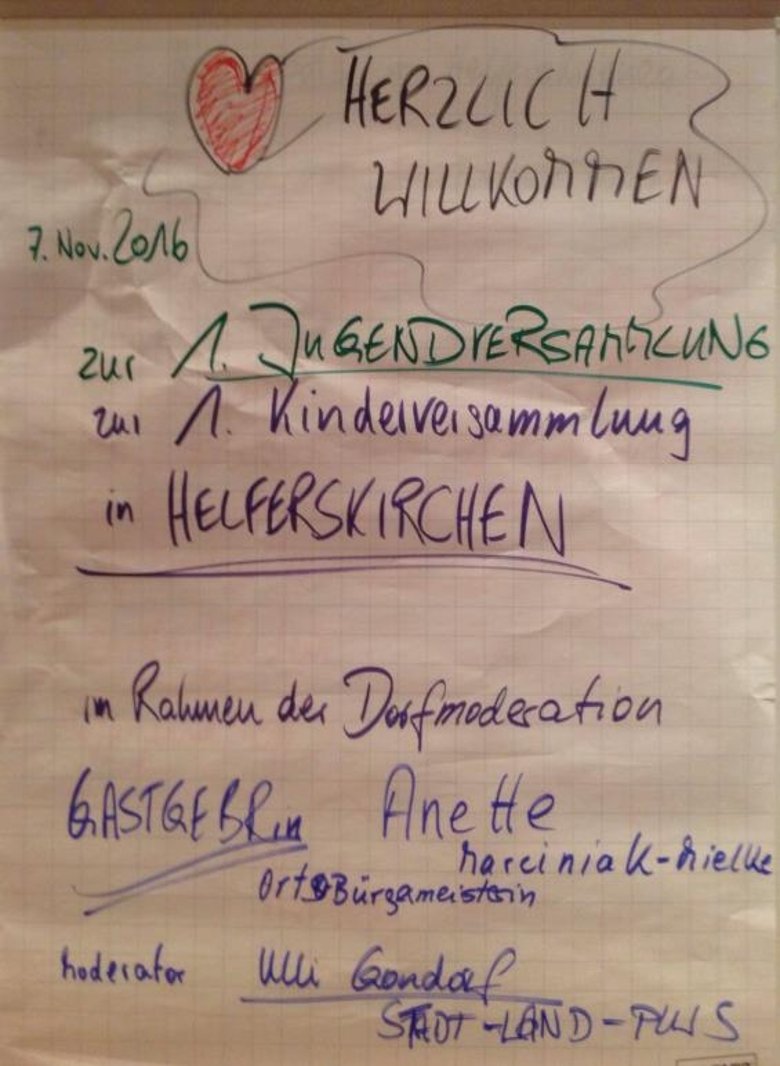 HERZLICH
WILLKOMMEN
7. Nov. 2016
zur 1. JUGENDVERSAMMLUNG
zur 1. Kinderversammlung
in HELFERSKIRCHEN
im Rahmen der Dorfmoderation
GASTGEBRin Anette
Marciniak-Mielke
OrtsBürgameisterin
Moderator Ulli Gondorf
STADT-LAND-PLUS